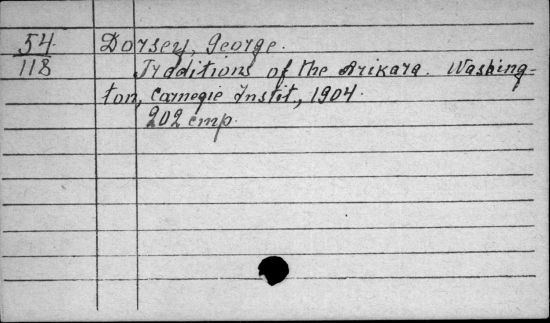 54 Dorsey, George.
118 Traditions of the Arikara. Washing-
ton, Carnegie Instit, 1904.
202 стр.